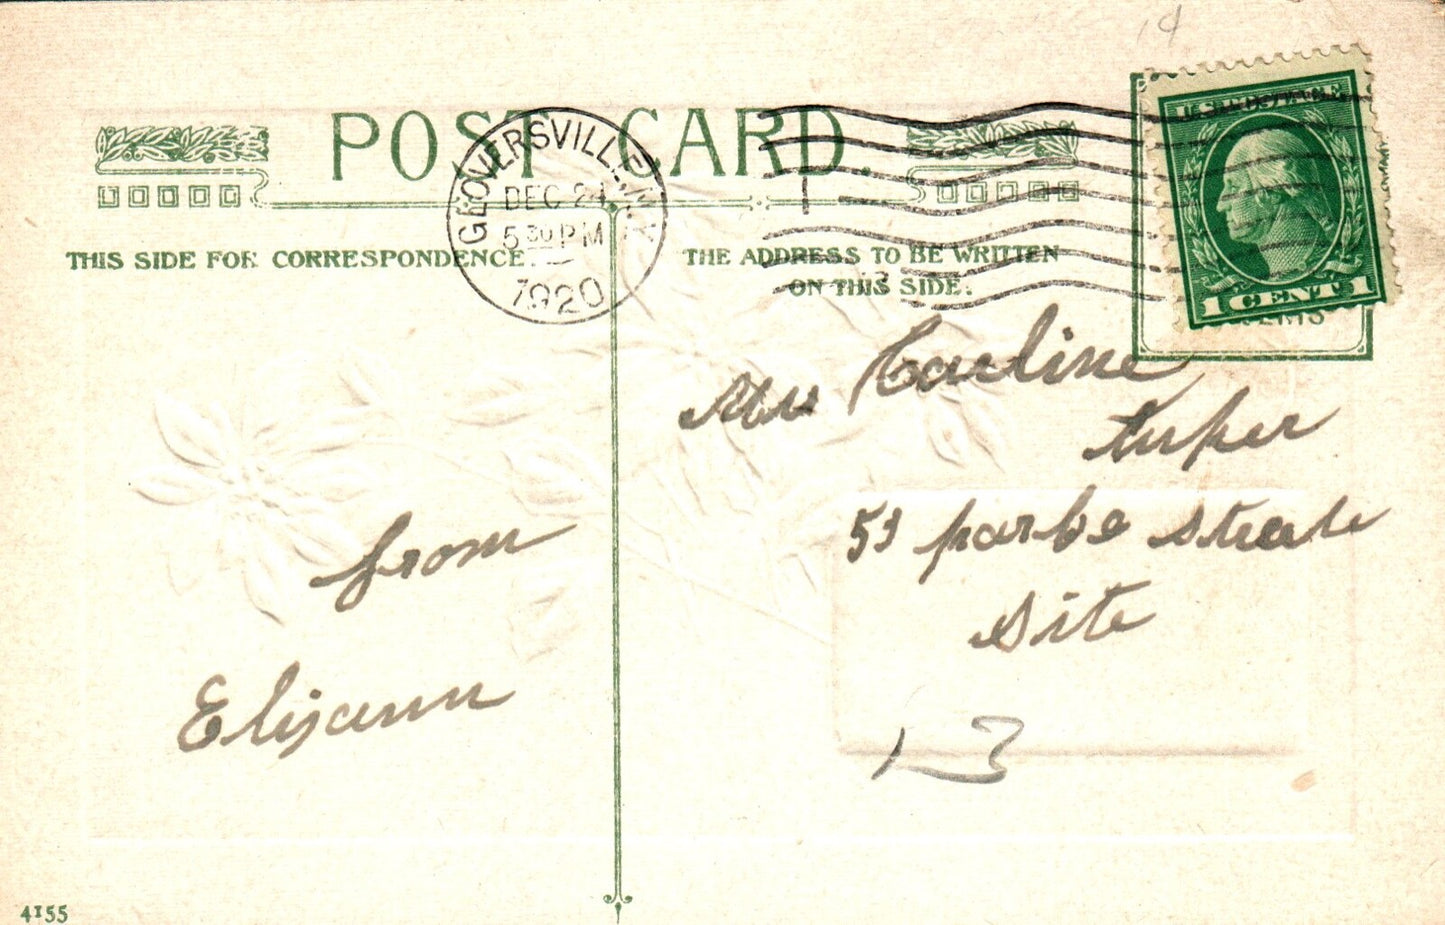 POST CARD.
GLOVERSVILLE, N.Y.
DEC 24
5 30 PM
1920
U.S. POSTAGE
1 CENT 1
THIS SIDE FOR CORRESPONDENCE.
THE ADDRESS TO BE WRITTEN
ON THIS SIDE.
Mrs Carline
51 parke
Site
from
Elizann
13
4155